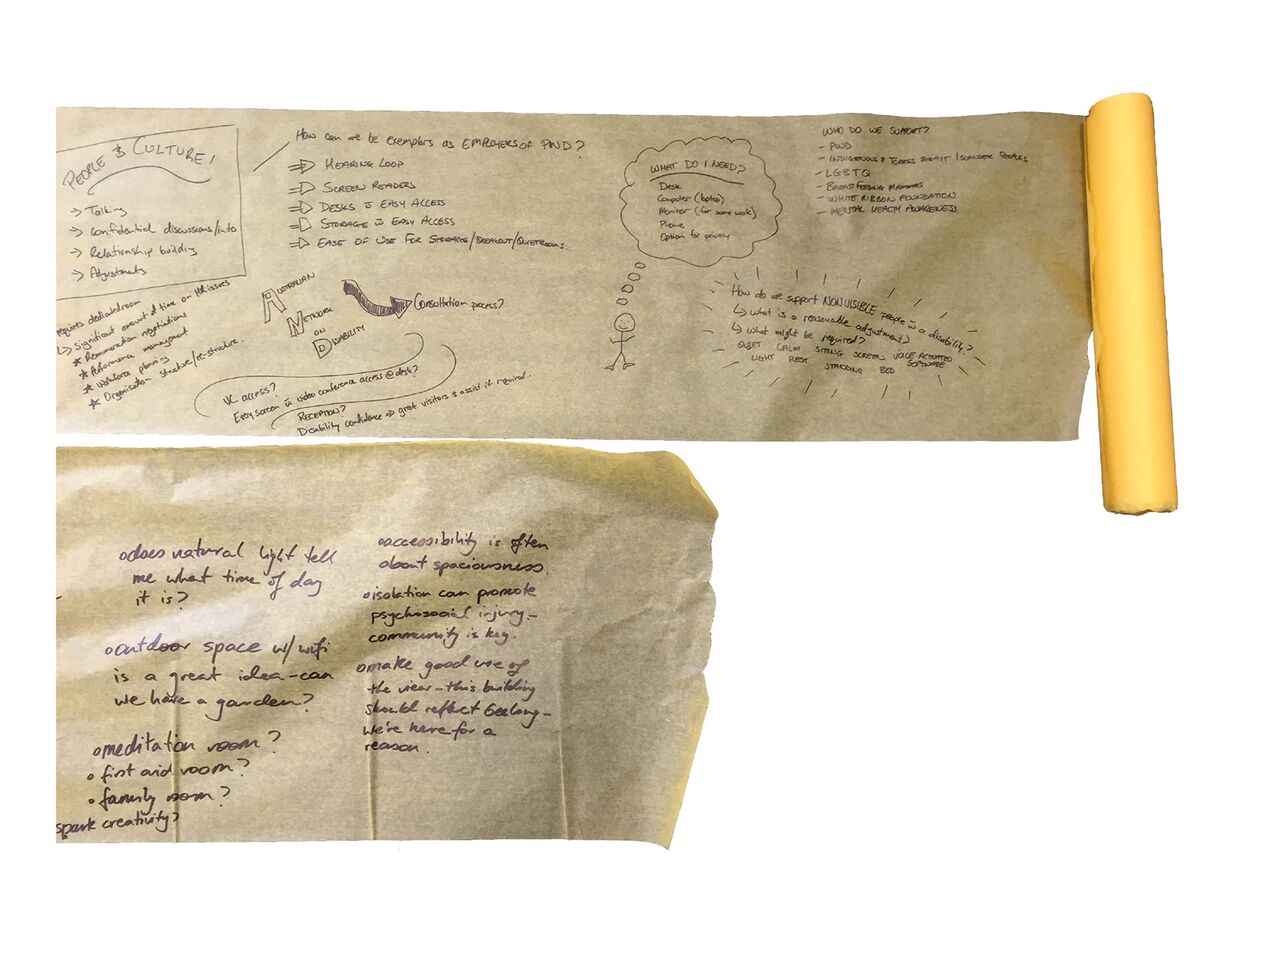 PEOPLE & CULTURE!
→ Talking
→ Confidential discussions/info
→ Relationship building
→ Adjustments
requires dedicated room
↳ Significant amount of time on HR issues
★ Remuneration negotiations
★ Performance management
★ Workforce planning
★ Organisation structure/re-structure.
How can we be exemplars as EMPLOYERS OF PWD?
⇒ HEARING LOOP
⇒ SCREEN READERS
⇒ DESKS EASY ACCESS
⇒ STORAGE EASY ACCESS
⇒ EASE OF USE FOR STORAGE/BREAKOUT/QUIETROOMS.
AUSTRALIAN
NETWORK
ON
DISABILITY
Consultation process?
VC access?
Easy screen video conference access @ desk?
RECEPTION?
Disability confidence ⇒ greet visitors & assist if required...
WHAT DO I NEED?
Desk
Computer (laptop)
Monitor (for some work)
Phone
Option for privacy
WHO DO WE SUPPORT?
- PWD
- INDIGENOUS & TORRES STRAIT ISLANDER PEOPLES
- LGBTQ
- BREASTFEEDING MAMMAS
- WHITE RIBBON FOUNDATION
- MENTAL HEALTH AWARENESS
How do we support NON VISIBLE people a disability?
↳ what is a reasonable adjustment?
↳ what might be required?
QUIET CALM SITTING SCREEN VOICE ACTIVATED
LIGHT REST STANDING BED SOFTWARE
• does natural light tell
me what time of day
it is?
• outdoor space w/ wifi
is a great idea - can
we have a garden?
• meditation room?
• first aid room?
• family room?
spark creativity?
• accessibility is often
about spaciousness.
• isolation can promote
psychosocial injury -
community is key.
• make good use of
the view - this building
should reflect Geelong -
we're here for a
reason.